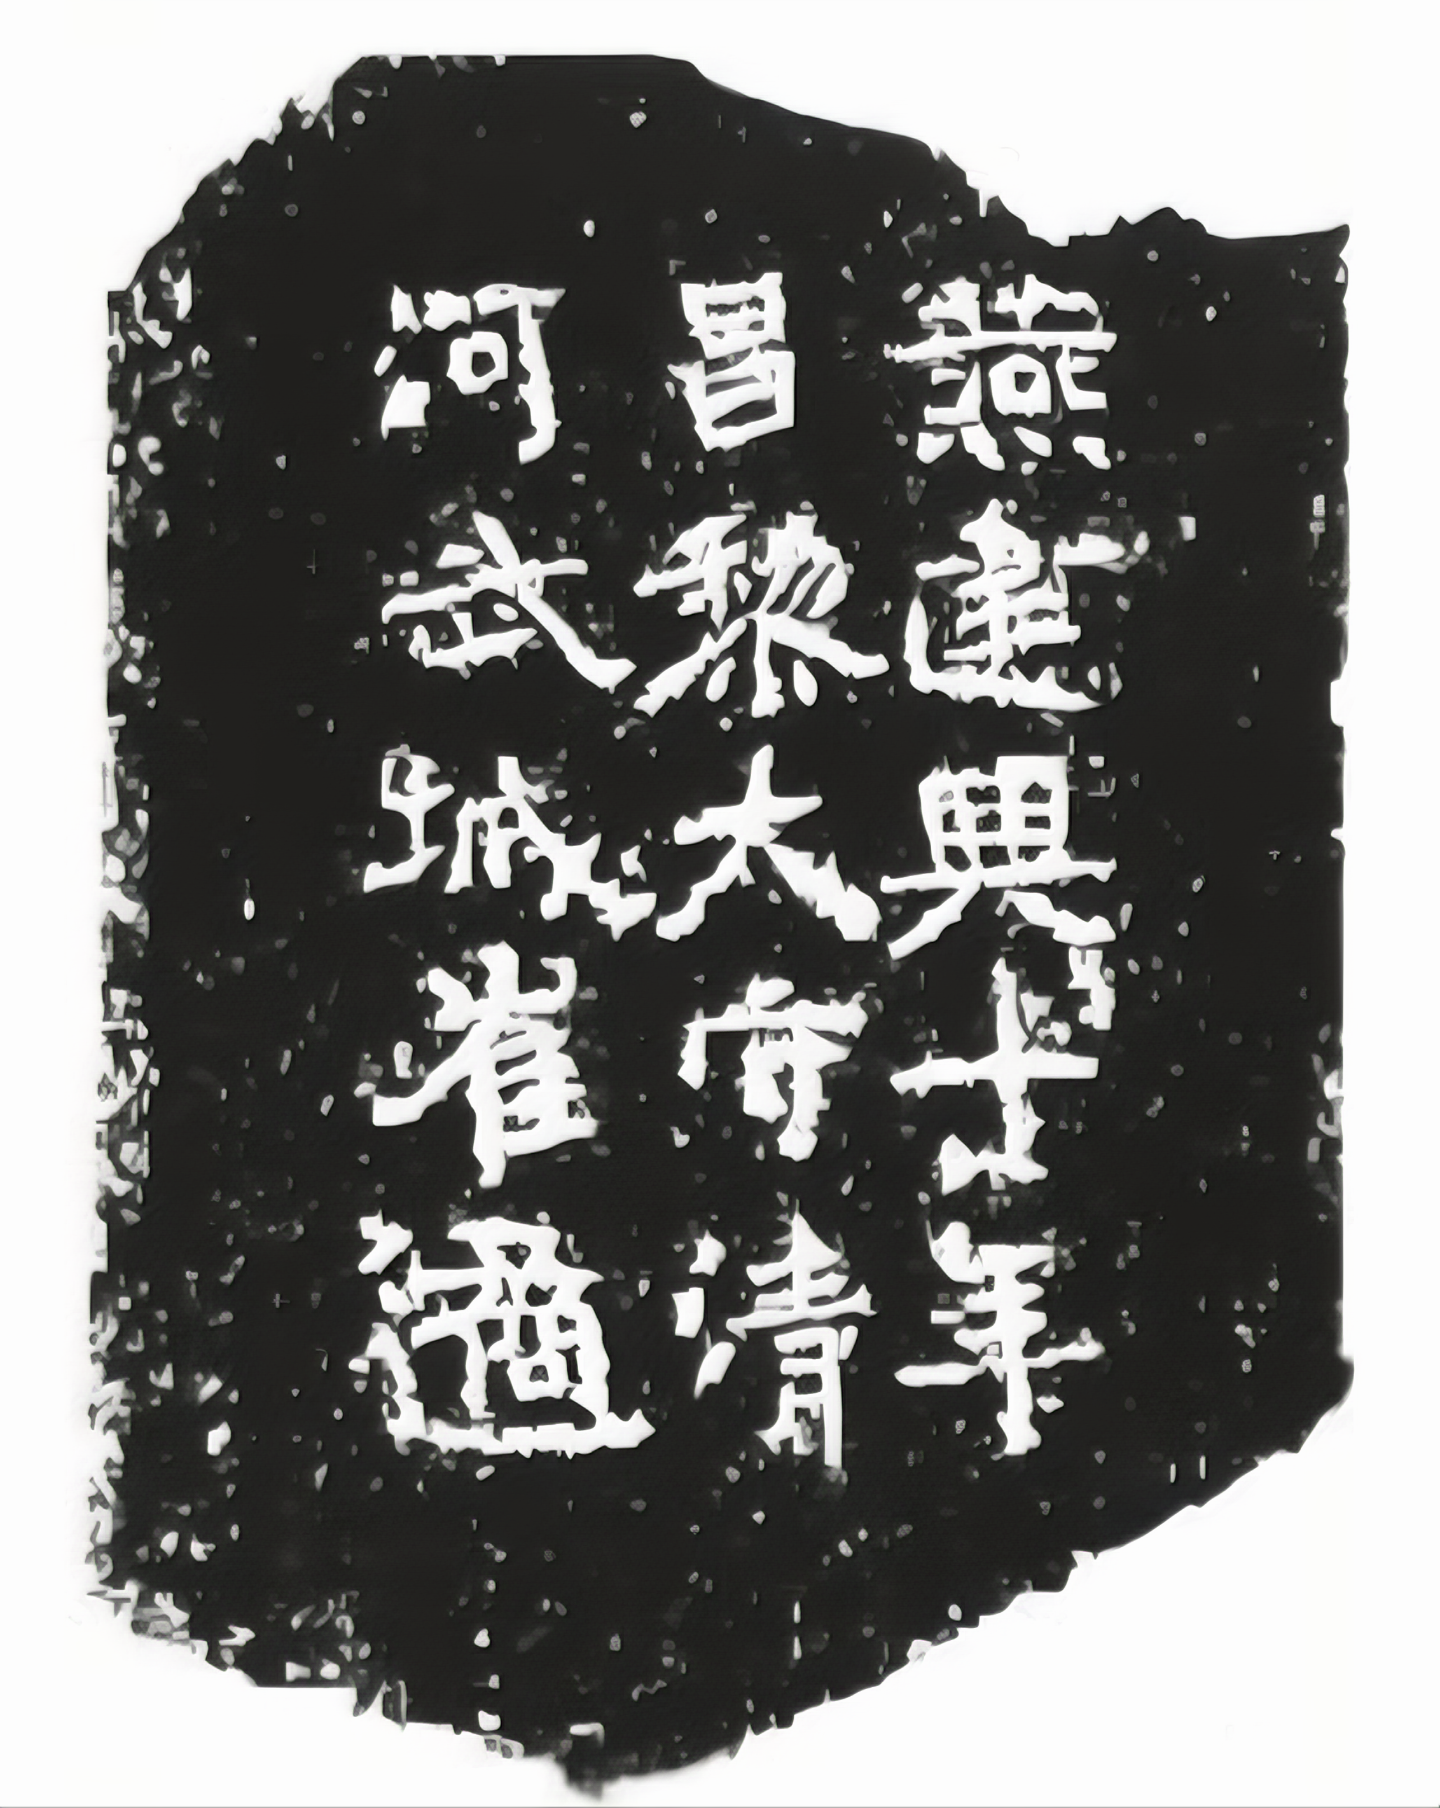 燕建興十年
昌黎大守清
河武城崔遹